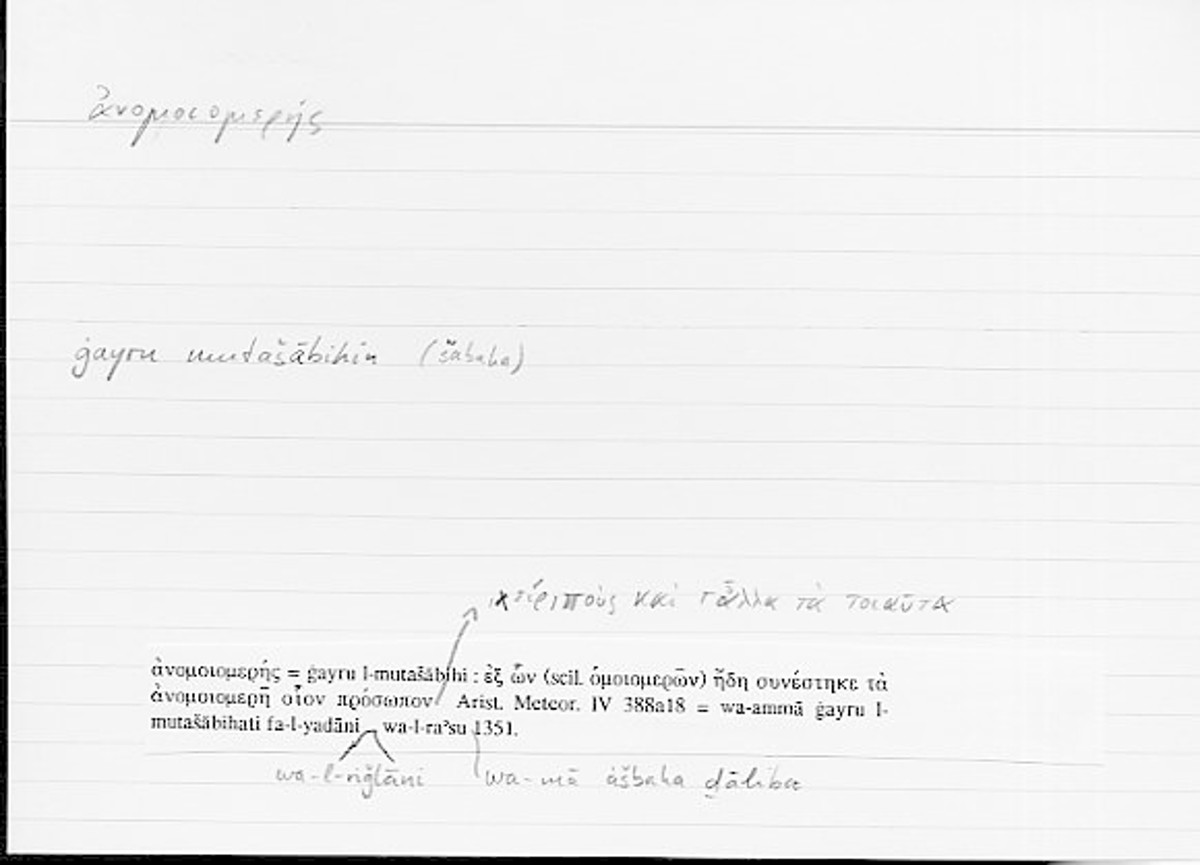 ἀνομοιομερής
ġayru mutašābihin (šabaha)
, χείρ, ποὺς καὶ τἆλλα τὰ τοιαῦτα
ἀνομοιομερής = ġayru l-mutašābihi : ἐξ ὧν (scil. ὁμοιομερῶν) ἤδη συνέστηκε τὰ
ἀνομοιομερῆ οἷον πρόσωπον Arist. Meteor. IV 388a18 = wa-ammā ġayru l-
mutašābihati fa-l-yadāni wa-l-raʾsu 1351.
wa-l-riǧlāni wa-mā ašbaha ḏālika